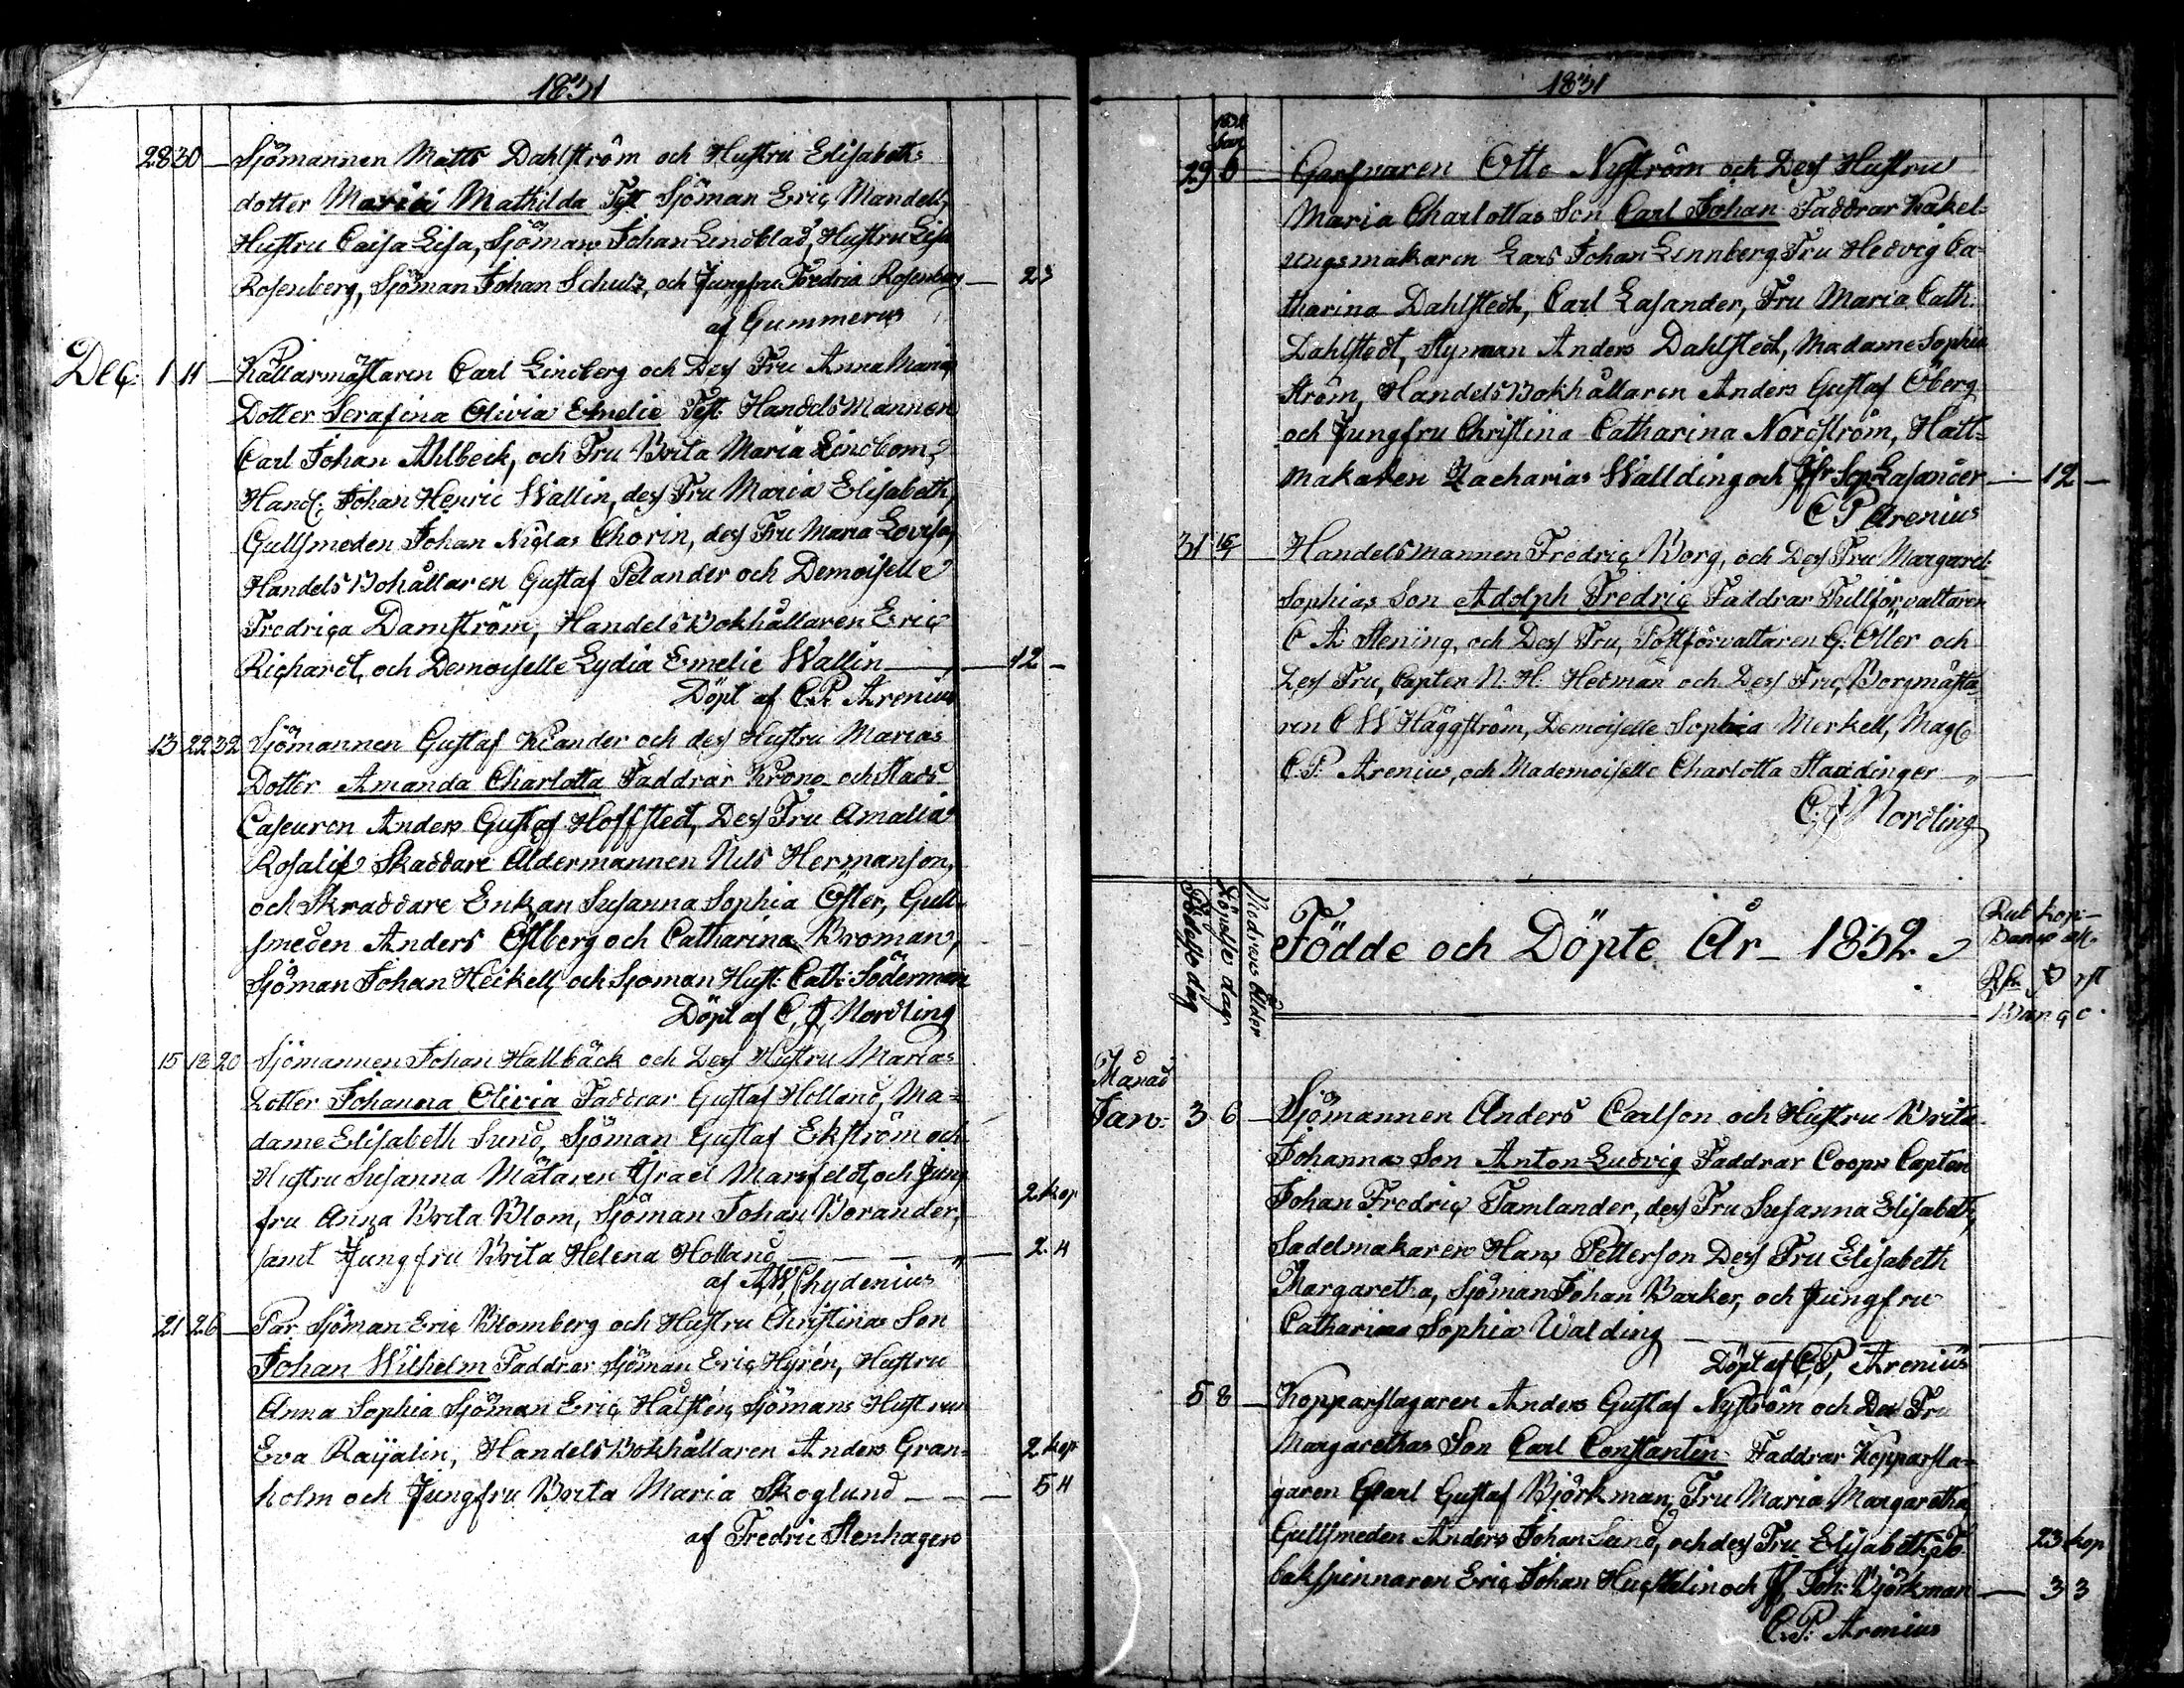 1831
28 30 — Sjömannen Matts Dahlström och Hustru Elisabeths
dotter Maria Mathilda Test Sjöman Eric Mandell,
Hustru Caisa Lisa, Sjöman Johan Lindblad, Hustru Lisa
Rosenberg, Sjöman Johan Schulz, och Jungfru Fredrica Rosenberg — 23
af Gummerus
Dec: 1 11 — Källarmästaren Carl Lindberg och Dess Fru Anna Marias
Dotter Serafina Olivia Emelie Test. Handelsmannen
Carl Johan Ahlbeck, och Fru Brita Maria Lindbom,
Handl: Johan Henric Wallin, dess Fru Maria Elisabeth,
Gullsmeden Johan Niclas Chorin, dess Fru Maria Lovisa,
Handels Bohållaren Gustaf Pelander och Demoiselle
Fredrica Damström, Handels Bokhållaren Eric
Richardt, och Demoiselle Lydia Emelie Wallin — 12 –
Döpt af C. P. Arenius
13 22 32 Sjömannen Gustaf Kiander och dess Hustru Marias
Dotter Amanda Charlotta Faddrar Krono och Stads
Caseuren Anders Gustaf Hoffstedt, Dess Fru Amalia
Rosalie Skaddare Åldermannen Nils Hermanson,
och Skraddare Enkan Susanna Sophia Öster, Gull-
smeden Anders Östberg och Catharina Broman,
Sjöman Johan Heikell, och Sjöman Hust: Cath: Söderman
Döpt af C. J. Nordling
15 18 20 Sjömannen Johan Hallbäck och Dess Hustru Marias
Dotter Johanna Olivia Faddrar Gustaf Holland, Ma=
dame Elisabeth Sund, Sjöman Gustaf Ekström och
Hustru Susanna Mätaren Israel Marsfeldt, och Jung
fru Anna Brita Blom, Sjöman Johan Borander, 2 kop
samt Jungfru Brita Helena Holland — 2. 4
af A W Chydenius
21 26 — Par Sjöman Eric Blomberg och Hustru Christinas Son
Johan Wilhelm Faddrar Sjöman Eric Hyrén, Hustru
Anna Sophia Sjöman Eric Halstén, Sjömans Hustrun
Eva Raijalin, Handels Bokhållaren Anders Gran= 2 kop
holm och Jungfru Brita Maria Skoglund — 5 4
af Fredric Stenhagen
1831
29 6 — Garfvaren Otto Nyström och Dess Hustru
Maria Charlottas Son Carl Johan Faddrar Kakel=
ungsmakaren Lars Johan Lennberg Fru Hedvig Ca-
tharina Dahlstedt, Carl Lasander, Fru Maria Cath:
Dahlstedt, Styrman Anders Dahlstedt, Madame Sophia
Ström, Handels Bokhållaren Anders Gustaf Öberg
och Jungfru Christina Catharina Nordström, Hatt=
makaren Zacharias Wallding och Jfr Sop. Lasander — 12 —
C P Arenius
31 — Handelsmannen Fredric Borg, och Dess Fru Margaret=
Sophias Son Adolph Fredric Faddrar Tullförvaltaren
C A Stening, och Dess Fru, Postförvaltaren G. Öller och
Dess Fru, Capten N. H. Hedman och Dess Fru, Borgmästa
ren C W Häggström, Demoiselle Sophia Merkell, Mag
C. P. Arenius, och Mademoiselle Charlotta Staudinger —
C. J. Nordling
Födelse dag
Döpelse dag
Modrens Ålder
Födde och Döpte År – 1832
Rub kop –
Månad
Jan: 3 6 — Sjömannen Anders Carlson och Hustru Brita
Johannas Son Anton Ludvig Faddrar Coops Capten
Johan Fredric Tamlander, dess Fru Susanna Elisabeth,
Sadelmakaren Hans Petterson Dess Fru Elisabeth
Margaretha, Sjöman Johan Barker, och Jungfru
Catharina Sophia Walding
Döpt af C. P. Arenius
5 8 — Kopparslagaren Anders Gustaf Nyström och Des Fru
Margarethas Son Carl Constantin Faddrar Kopparsla=
garen Carl Gustaf Björkman, Fru Maria Margaretha,
Gullsmeden Anders Johan Lund, och dess Fru Elisabeth, To 23 kop
bakspinnaren Eric Johan Huctelin och Jfr Joh: Björkman — 3 3
C. P. Arenius